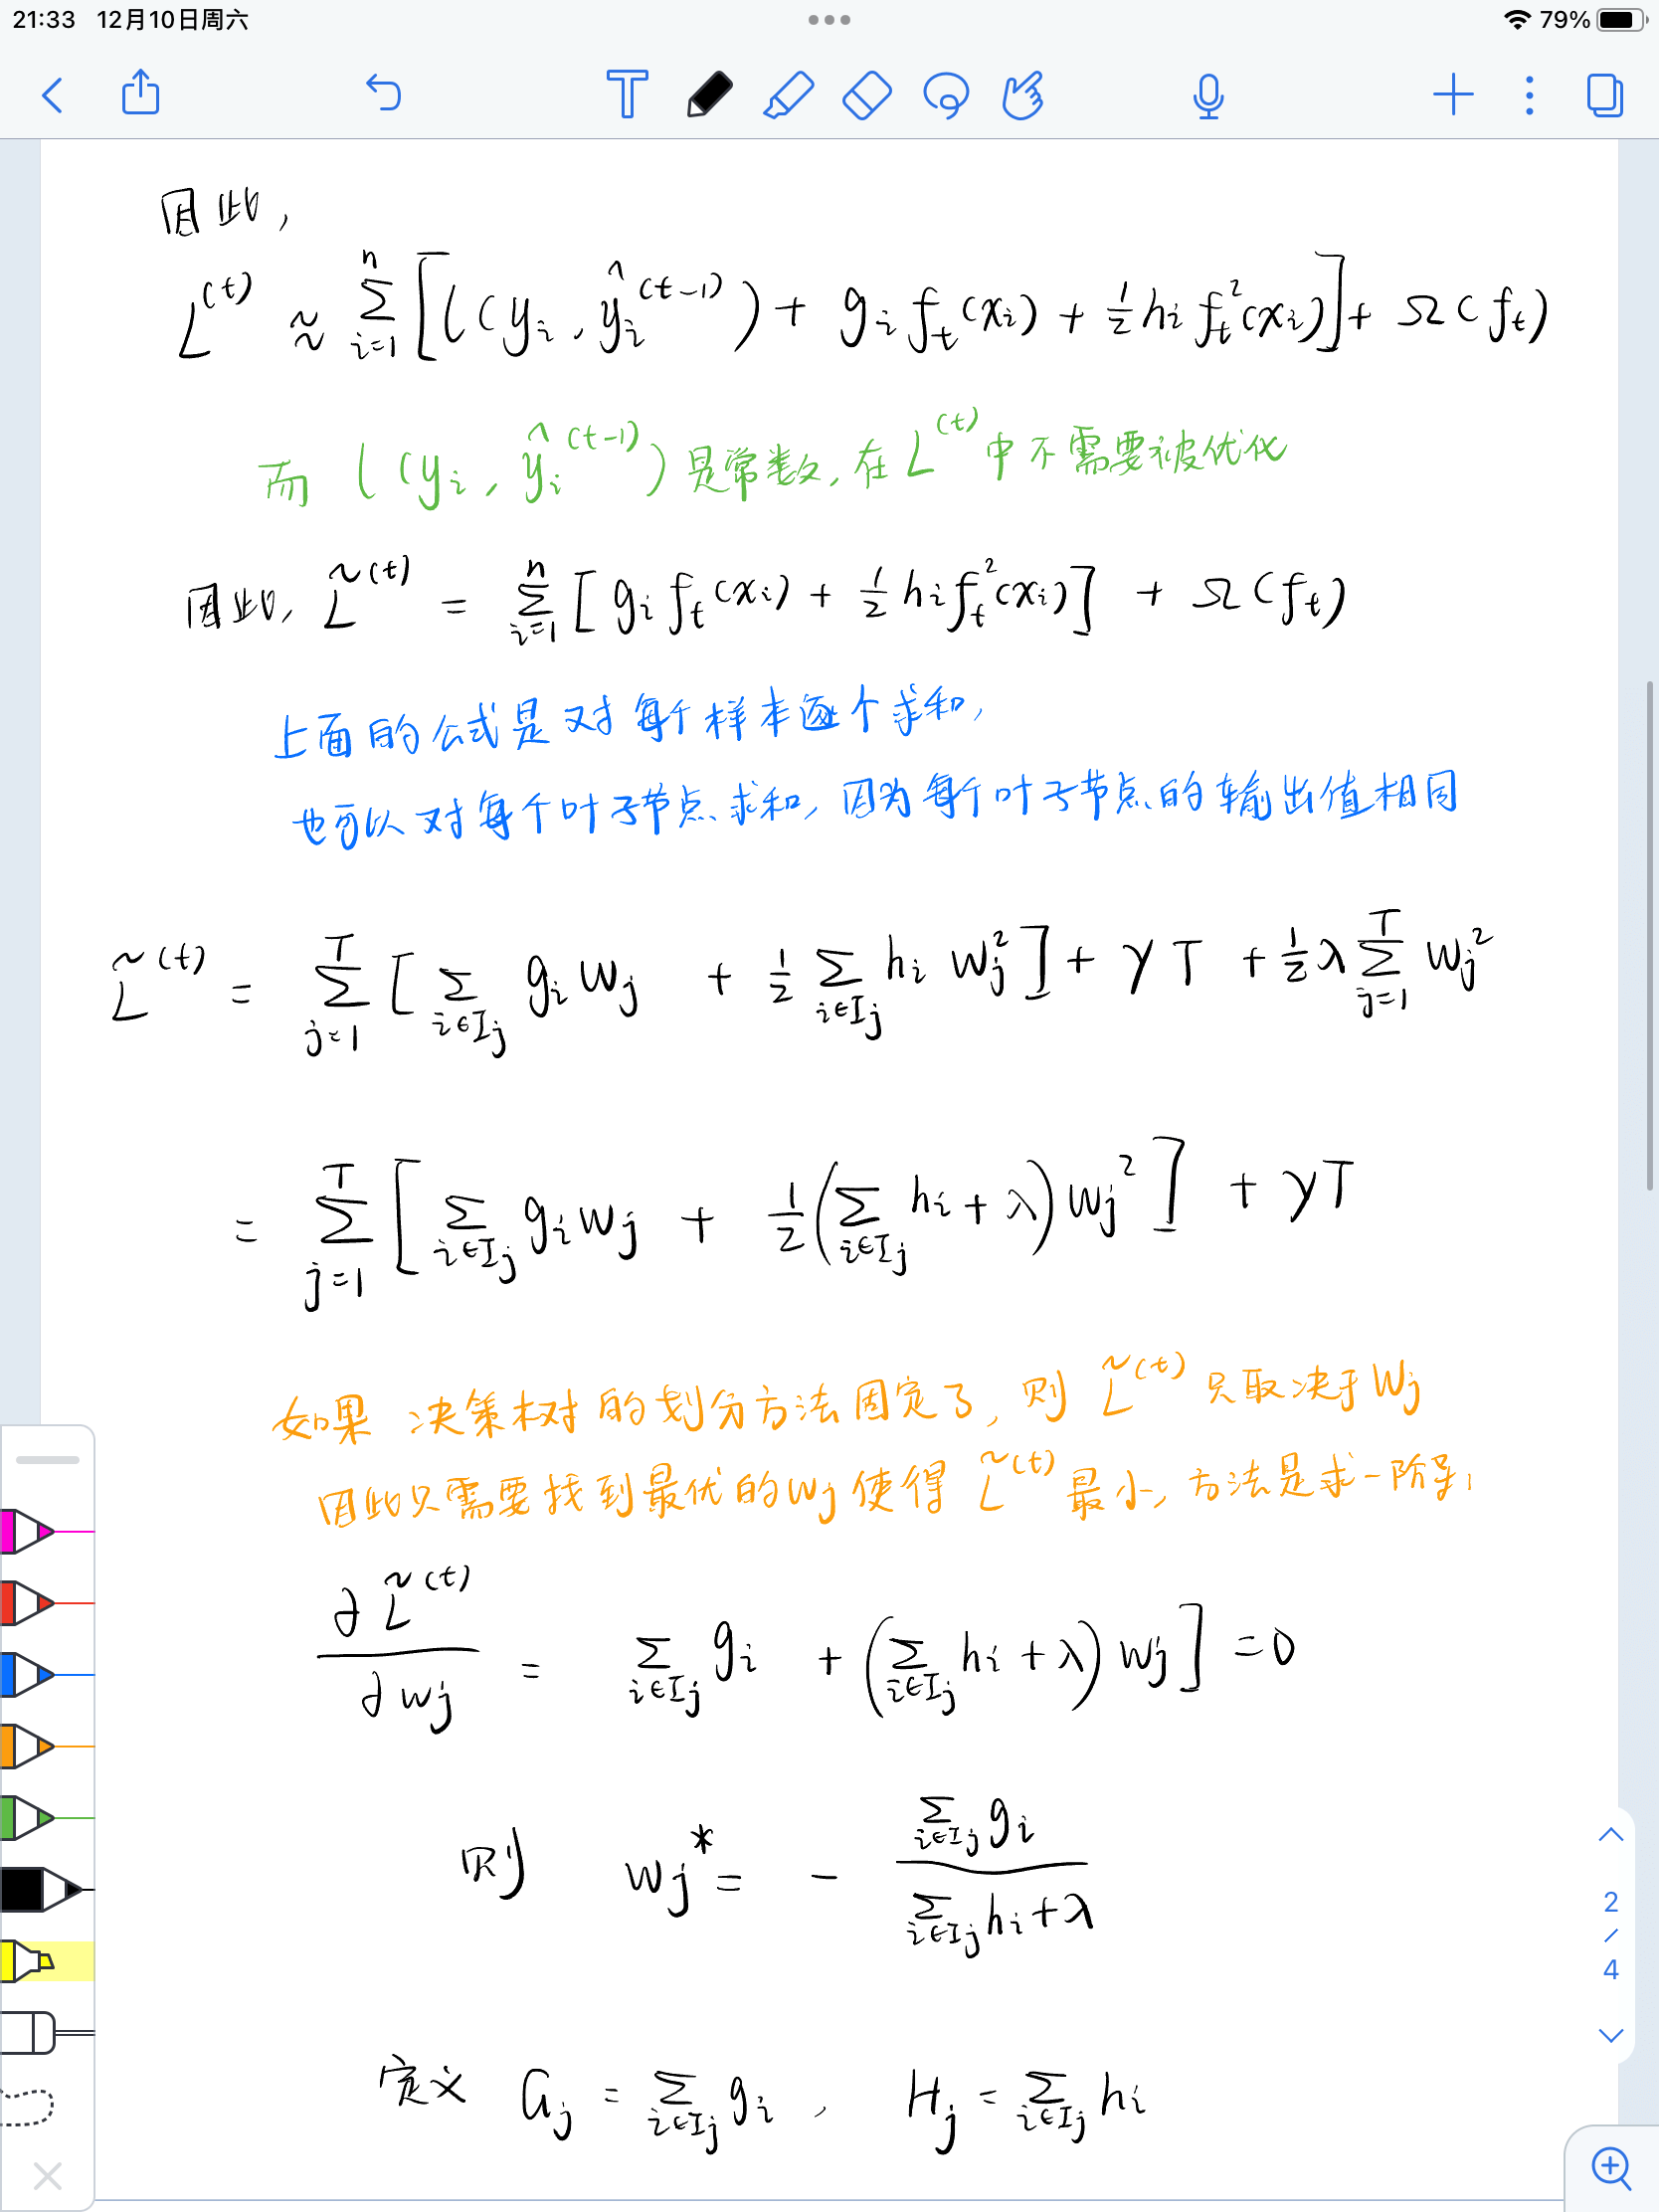 21:33 12月10日周六 79%
因此,
L^(t) ≈ Σ_{i=1}^{n} [l(y_i, ŷ_i^(t-1)) + g_i f_t(x_i) + ½ h_i f_t²(x_i)] + Ω(f_t)
而 l(y_i, ŷ_i^(t-1)) 是常数, 在 L^(t) 中不需要被优化
因此, L̃^(t) = Σ_{i=1}^{n} [g_i f_t(x_i) + ½ h_i f_t²(x_i)] + Ω(f_t)
上面的公式是对每个样本逐个求和,
也可以对每个叶子节点求和, 因为每个叶子节点的输出值相同
L̃^(t) = Σ_{j=1}^{T} [Σ_{i∈I_j} g_i w_j + ½ Σ_{i∈I_j} h_i w_j²] + γT + ½ λ Σ_{j=1}^{T} w_j²
= Σ_{j=1}^{T} [Σ_{i∈I_j} g_i w_j + ½ (Σ_{i∈I_j} h_i + λ) w_j²] + γT
如果 决策树的划分方法固定了, 则 L̃^(t) 只取决于 w_j
因此只需要找到最优的 w_j 使得 L̃^(t) 最小, 方法是求一阶导
∂L̃^(t)/∂w_j = Σ_{i∈I_j} g_i + (Σ_{i∈I_j} h_i + λ) w_j] = 0
则 w_j* = - Σ_{i∈I_j} g_i / Σ_{i∈I_j} h_i + λ
定义 G_j = Σ_{i∈I_j} g_i , H_j = Σ_{i∈I_j} h_i
2/4